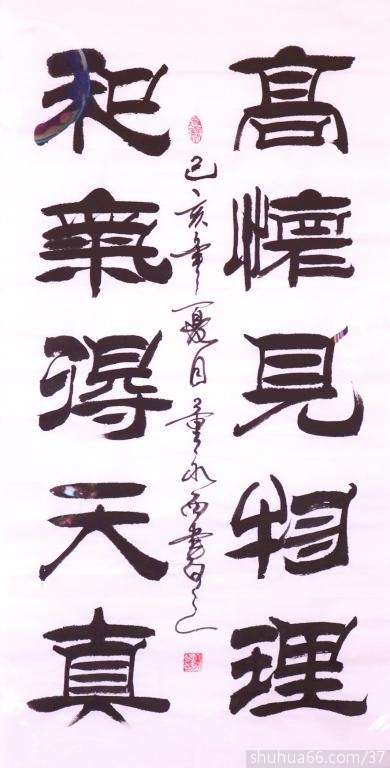 高懷見物理
和氣得天真
己亥年夏日董永西書之
shuhua66.com/37